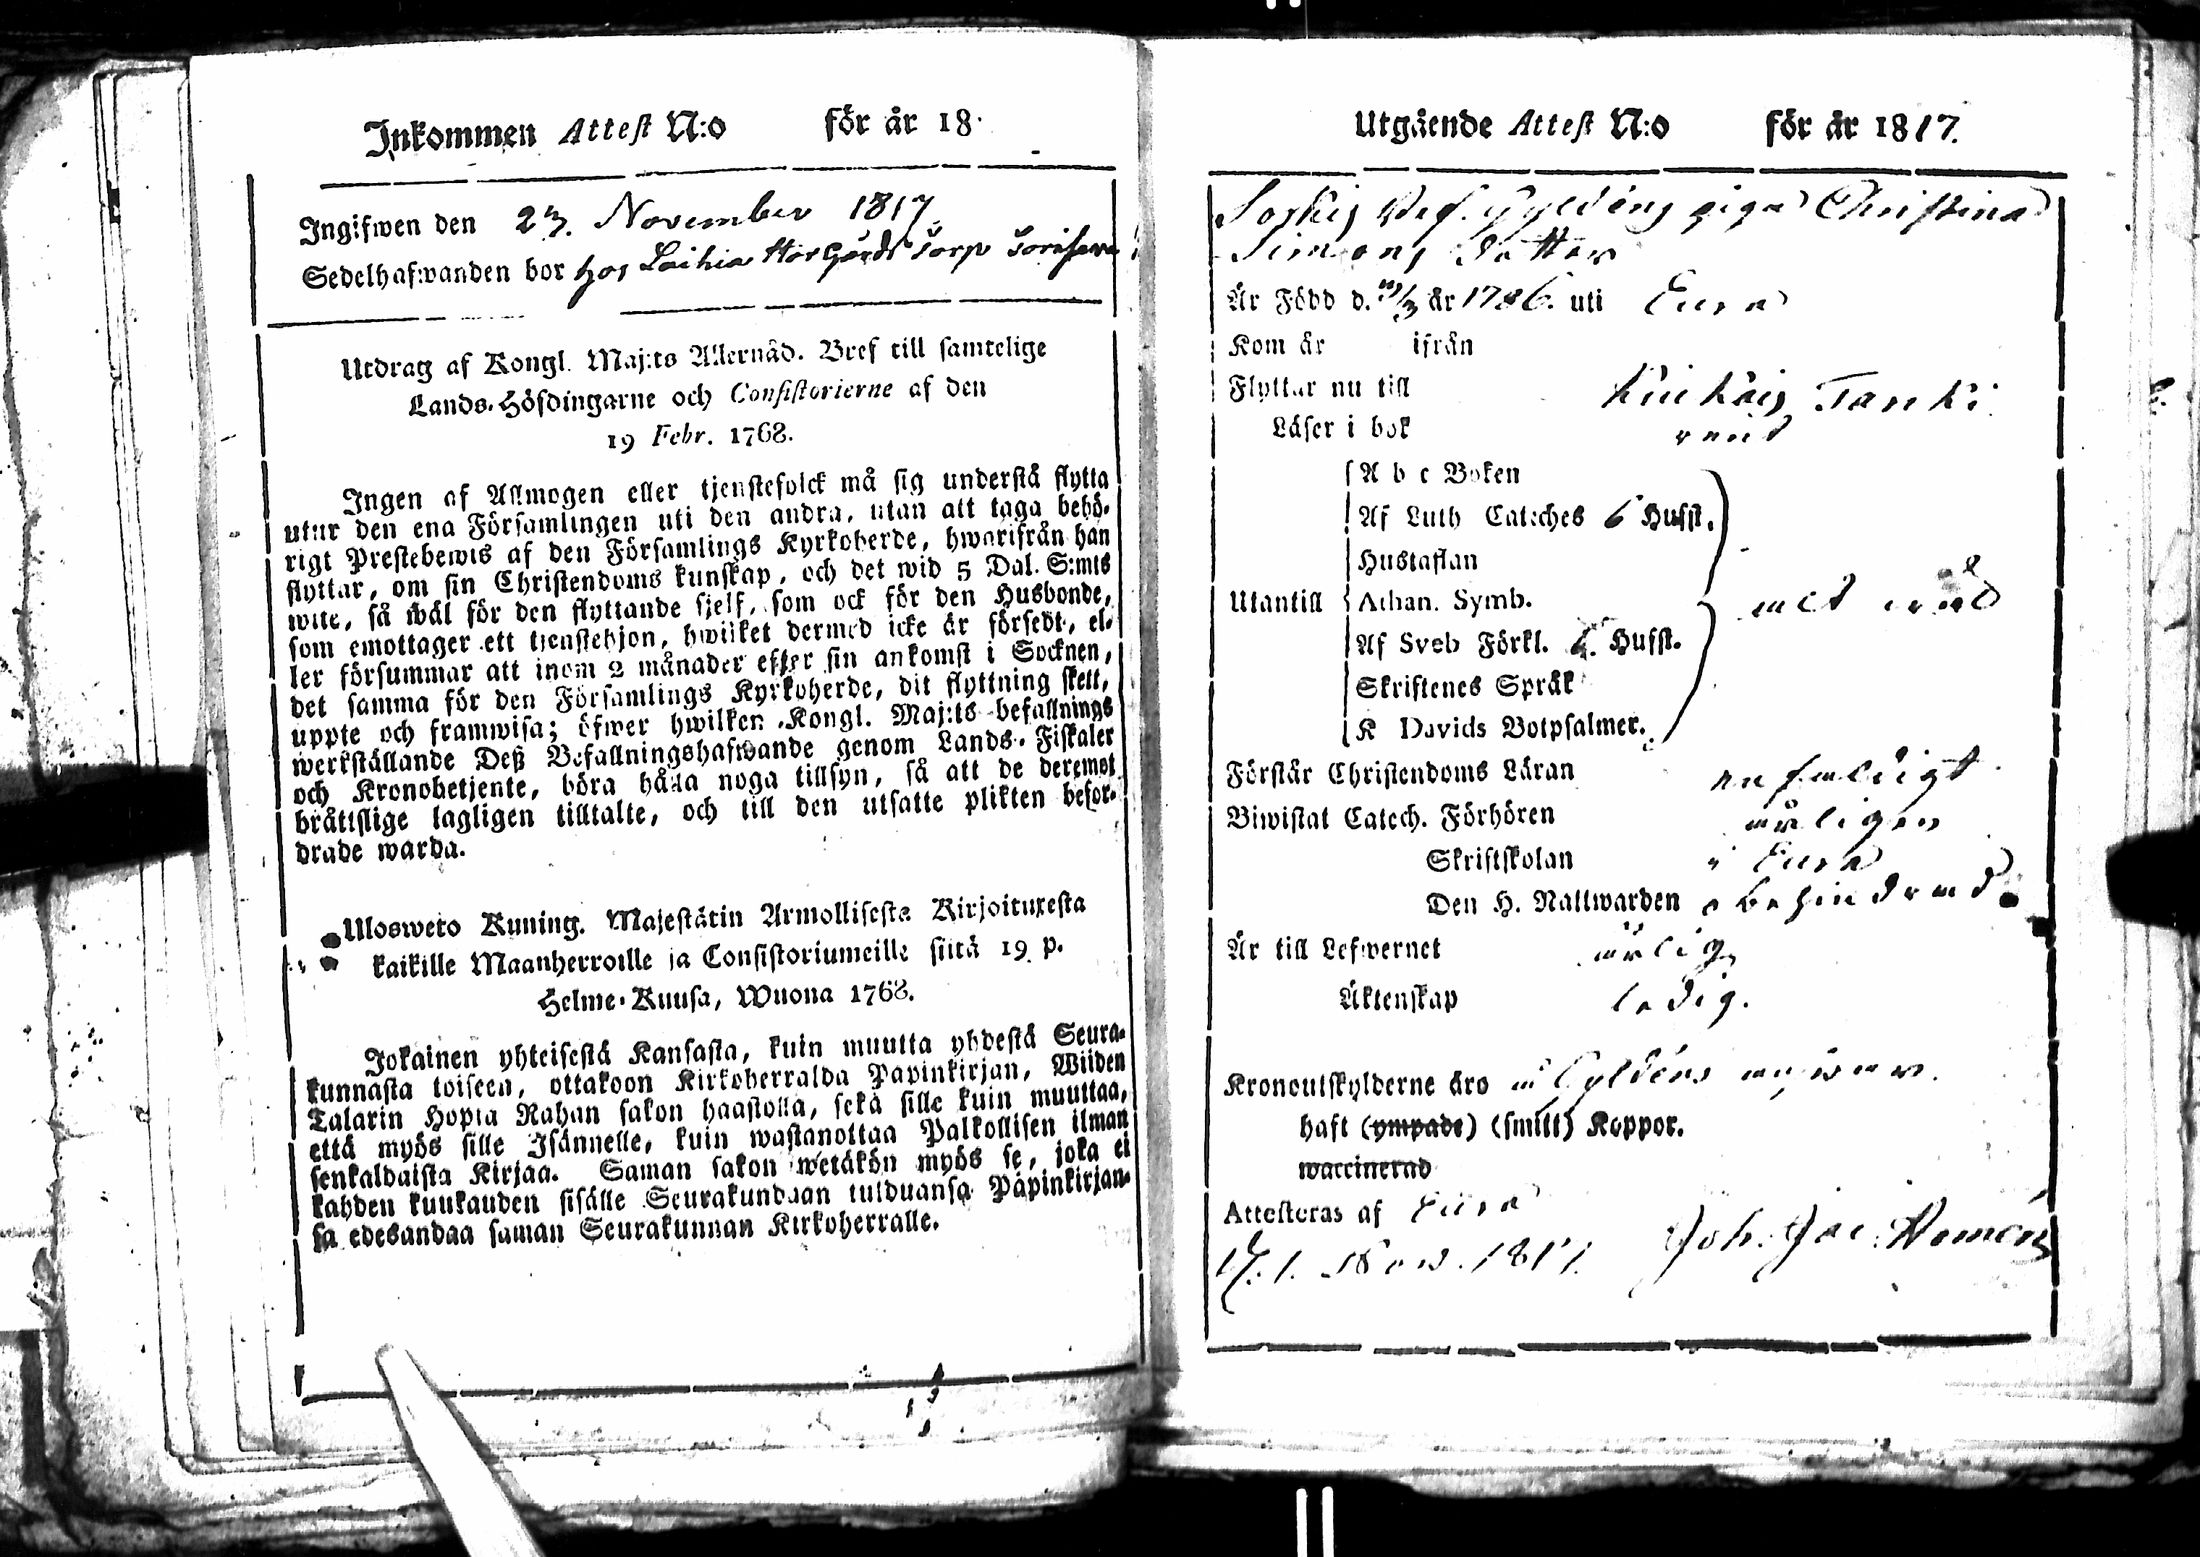 Inkommen Attest N:o för år 18
Ingifwen den 23. November 1817.
Sedelhafwanden bor hos Laihia Torp
Utdrag af Kongl. Maj:ts Allernåd. Bref till samtelige
Lands-Höfdingarne och Consistorierne af den
19 Febr. 1768.
Ingen af Allmogen eller tjenstefolck må sig understå flytta
utur den ena Församlingen uti den andra, utan att taga behö-
rigt Prestebewis af den Församlings Kyrkoherde, hwarifrån han
flyttar, om sin Christendoms kunskap, och det wid 5 Dal. S:mts
wite, så wäl för den flyttande sjelf, som ock för den Husbonde,
som emottager ett tjenstehjon, hwilket dermed icke är försedt, el-
ler försummar att inom 2 månader efter sin ankomst i Socknen,
det samma för den Församlings Kyrkoherde, dit flyttning skett,
uppte och framwisa; öfwer hwilken Kongl. Maj:ts befallnings
werkställande Deß Befallningshafwande genom Lands-Fiskaler
och Kronobetjente, böra hålla noga tillsyn, så att de deremot
bråttslige lagligen tilltalte, och till den utsatte plikten befor-
drade warda.
Ulosweto Kuning. Majestätin Armollisesta Kirjoituxesta
kaikille Maanherroille ja Consistoriumeille siitä 19 p.
Helme-Kuusa, Wuona 1768.
Jokainen yhteisestä Kansasta, kuin muutta yhdestä Seura-
kunnasta toiseen, ottakoon Kirkoherralda Papinkirjan, Wiiden
Talarin Hopia Rahan sakon haastolla, sekä sille kuin muuttaa,
että myös sille Isännelle, kuin wastanottaa Palkollisen ilman
senkaldaista Kirjaa. Saman sakon wetäkön myös se, joka ei
kahden kuukauden sisälle Seurakundaan tulduansa Papinkirjan-
sa edesandaa saman Seurakunnan Kirkoherralle.
Utgående Attest N:o för år 1817.
Gyldéns piga Christina
Simons dotter
Är Född d. år 1786. uti Eura
Kom år ifrån
Flyttar nu till
Läser i bok
A b c Boken
Af Luth Cateches 6 Hufst.
Hustaflan
Utantill Athan. Symb.
Af Sveb Förkl. Hufst.
Skriftenes Språk
K Davids Botpsalmer.
Förstår Christendoms Läran enfaldigt
Biwistat Catech. Förhören årligen
Skriftskolan i Eura
Den H. Nattwarden obehindrad
Är till Lefwernet ärlig
Äktenskap ledig.
Kronoutskylderne äro Gyldéns
haft (ympade) (smitt) Koppor.
waccinerad
Attesteras af Eura
d. 1. Nov. 1817. Joh. Jac.